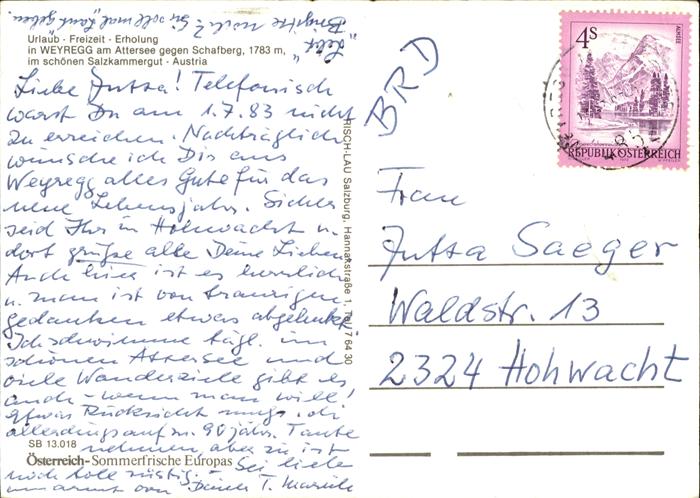 "Lebt"
Brigitte noch? Sie soll mal "Laut geben".
Urlaub · Freizeit · Erholung
in WEYREGG am Attersee gegen Schafberg, 1783 m,
im schönen Salzkammergut · Austria
Liebe Jutta! Telefonisch
warst Du am 1.7.83 nicht
zu erreichen. Nachträglich
wünsche ich Dir aus
Weyregg alles Gute für das
neue Lebensjahr. Sicher
seid Ihr in Hohwacht u.
dort grüße alle Deine Lieben
Auch hier ist es herrlich
u. man ist von traurigen
gedanken etwas abgelenkt
Ich schwimme tägl. im
schönen Attersee und
viele Wanderziele gibt es
auch - wenn man will!
etwas Rücksicht
allerdings auf m. 90 jähr. Tante
nehmen aber sie ist
noch toll rüstig. - Sei liebe
umarmt von Deiner T.
SB 13.018
Österreich - Sommerfrische Europas
RISCH-LAU Salzburg, Hannakstraße 1, Tel. 7 64 30
BRD
4S
ALMSEE
REPUBLIK ÖSTERREICH
Frau
Jutta Saeger
Waldstr. 13
2324 Hohwacht